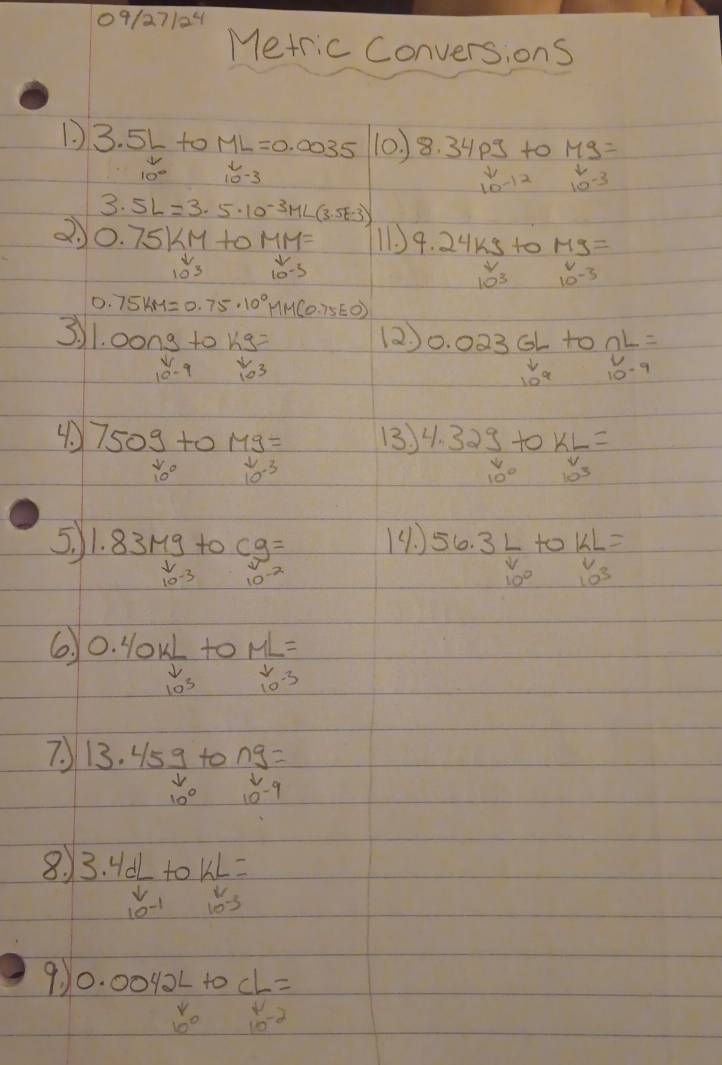 09/27/24
Metric Conversions
1.) 3.5L to ML=0.0035
↓ 10⁰ ↓ 10-3
3.5L=3.5·10⁻³ML(3.5E-3)
2.) 0.75KM to MM=
↓ 10³ ↓ 10-3
0.75KM=0.75·10⁰MM(0.75E0)
3.) 1.00ng to kg=
↓ 10-9 ↓ 10³
4.) 750g to Mg=
↓ 10⁰ ↓ 10-3
5.) 1.83Mg to cg=
↓ 10-3 ↓ 10-2
6.) 0.40KL to ML=
↓ 10³ ↓ 10-3
7.) 13.45g to ng=
↓ 10⁰ ↓ 10-9
8.) 3.4dL to KL=
↓ 10-1 ↓ 10-3
9.) 0.0042L to cL=
↓ 10⁰ ↓ 10-2
10.) 8.34pg to Mg=
↓ 10-12 ↓ 10-3
11.) 9.24kg to Mg=
↓ 10³ ↓ 10-3
12.) 0.023GL to nL=
↓ 10⁹ ↓ 10-9
13.) 4.32g to KL=
↓ 10⁰ ↓ 10³
14.) 56.3L to KL=
↓ 10⁰ ↓ 10³